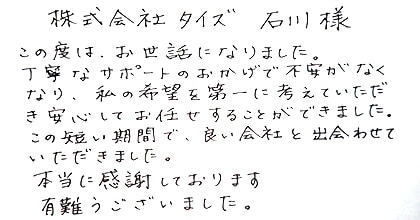 株式会社タイズ 石川様
この度は、お世話になりました。
丁寧なサポートのおかげで不安がなく
なり、私の希望を第一に考えていただ
き安心してお任せすることができました。
この短い期間で、良い会社と出会わせて
いただきました。
本当に感謝しております
有難うございました。